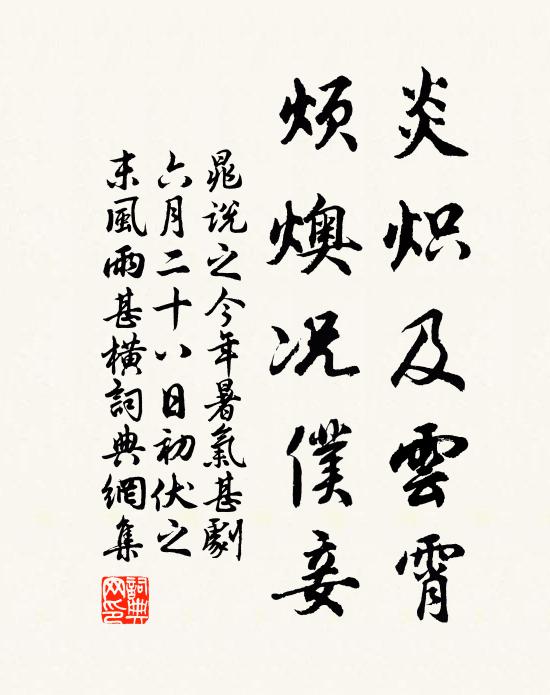 炎炽及雲霄
煩燠况僕妾
晁説之今年暑氣甚劇
六月二十八日初伏之
末風雨甚橫詞典網集
詞典
网印